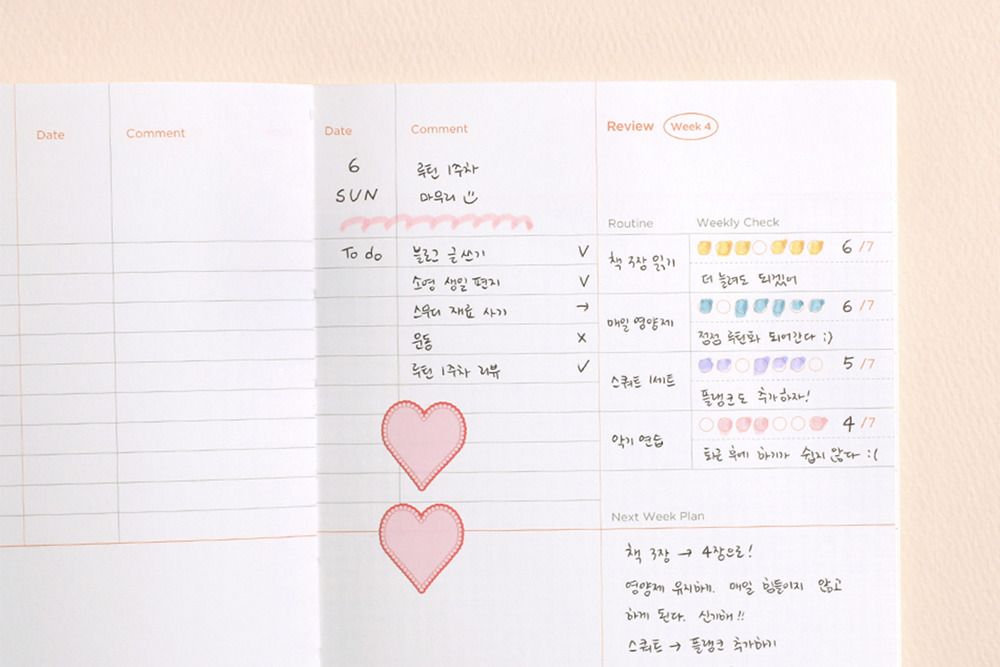 Date Comment
Date Comment
6 루틴 1주차
SUN 마무리
To do 블로그 글쓰기 V
소영 생일 편지 V
스무디 재료 사기 →
운동 X
루틴 1주차 리뷰 ✓
Review Week 4
Routine Weekly Check
책 3장 읽기 6 /7
더 늘려도 되겠어
매일 영양제 6 /7
점점 루틴화 되어간다 ;)
스쿼트 1세트 5 /7
플랭크도 추가하자!
악기 연습 4 /7
퇴근 후에 하기가 쉽지 않다 :(
Next Week Plan
책 3장 → 4장으로!
영양제 유지하게. 매일 힘들이지 않고
하게 된다. 신기해!!
스쿼트 → 플랭크 추가하기